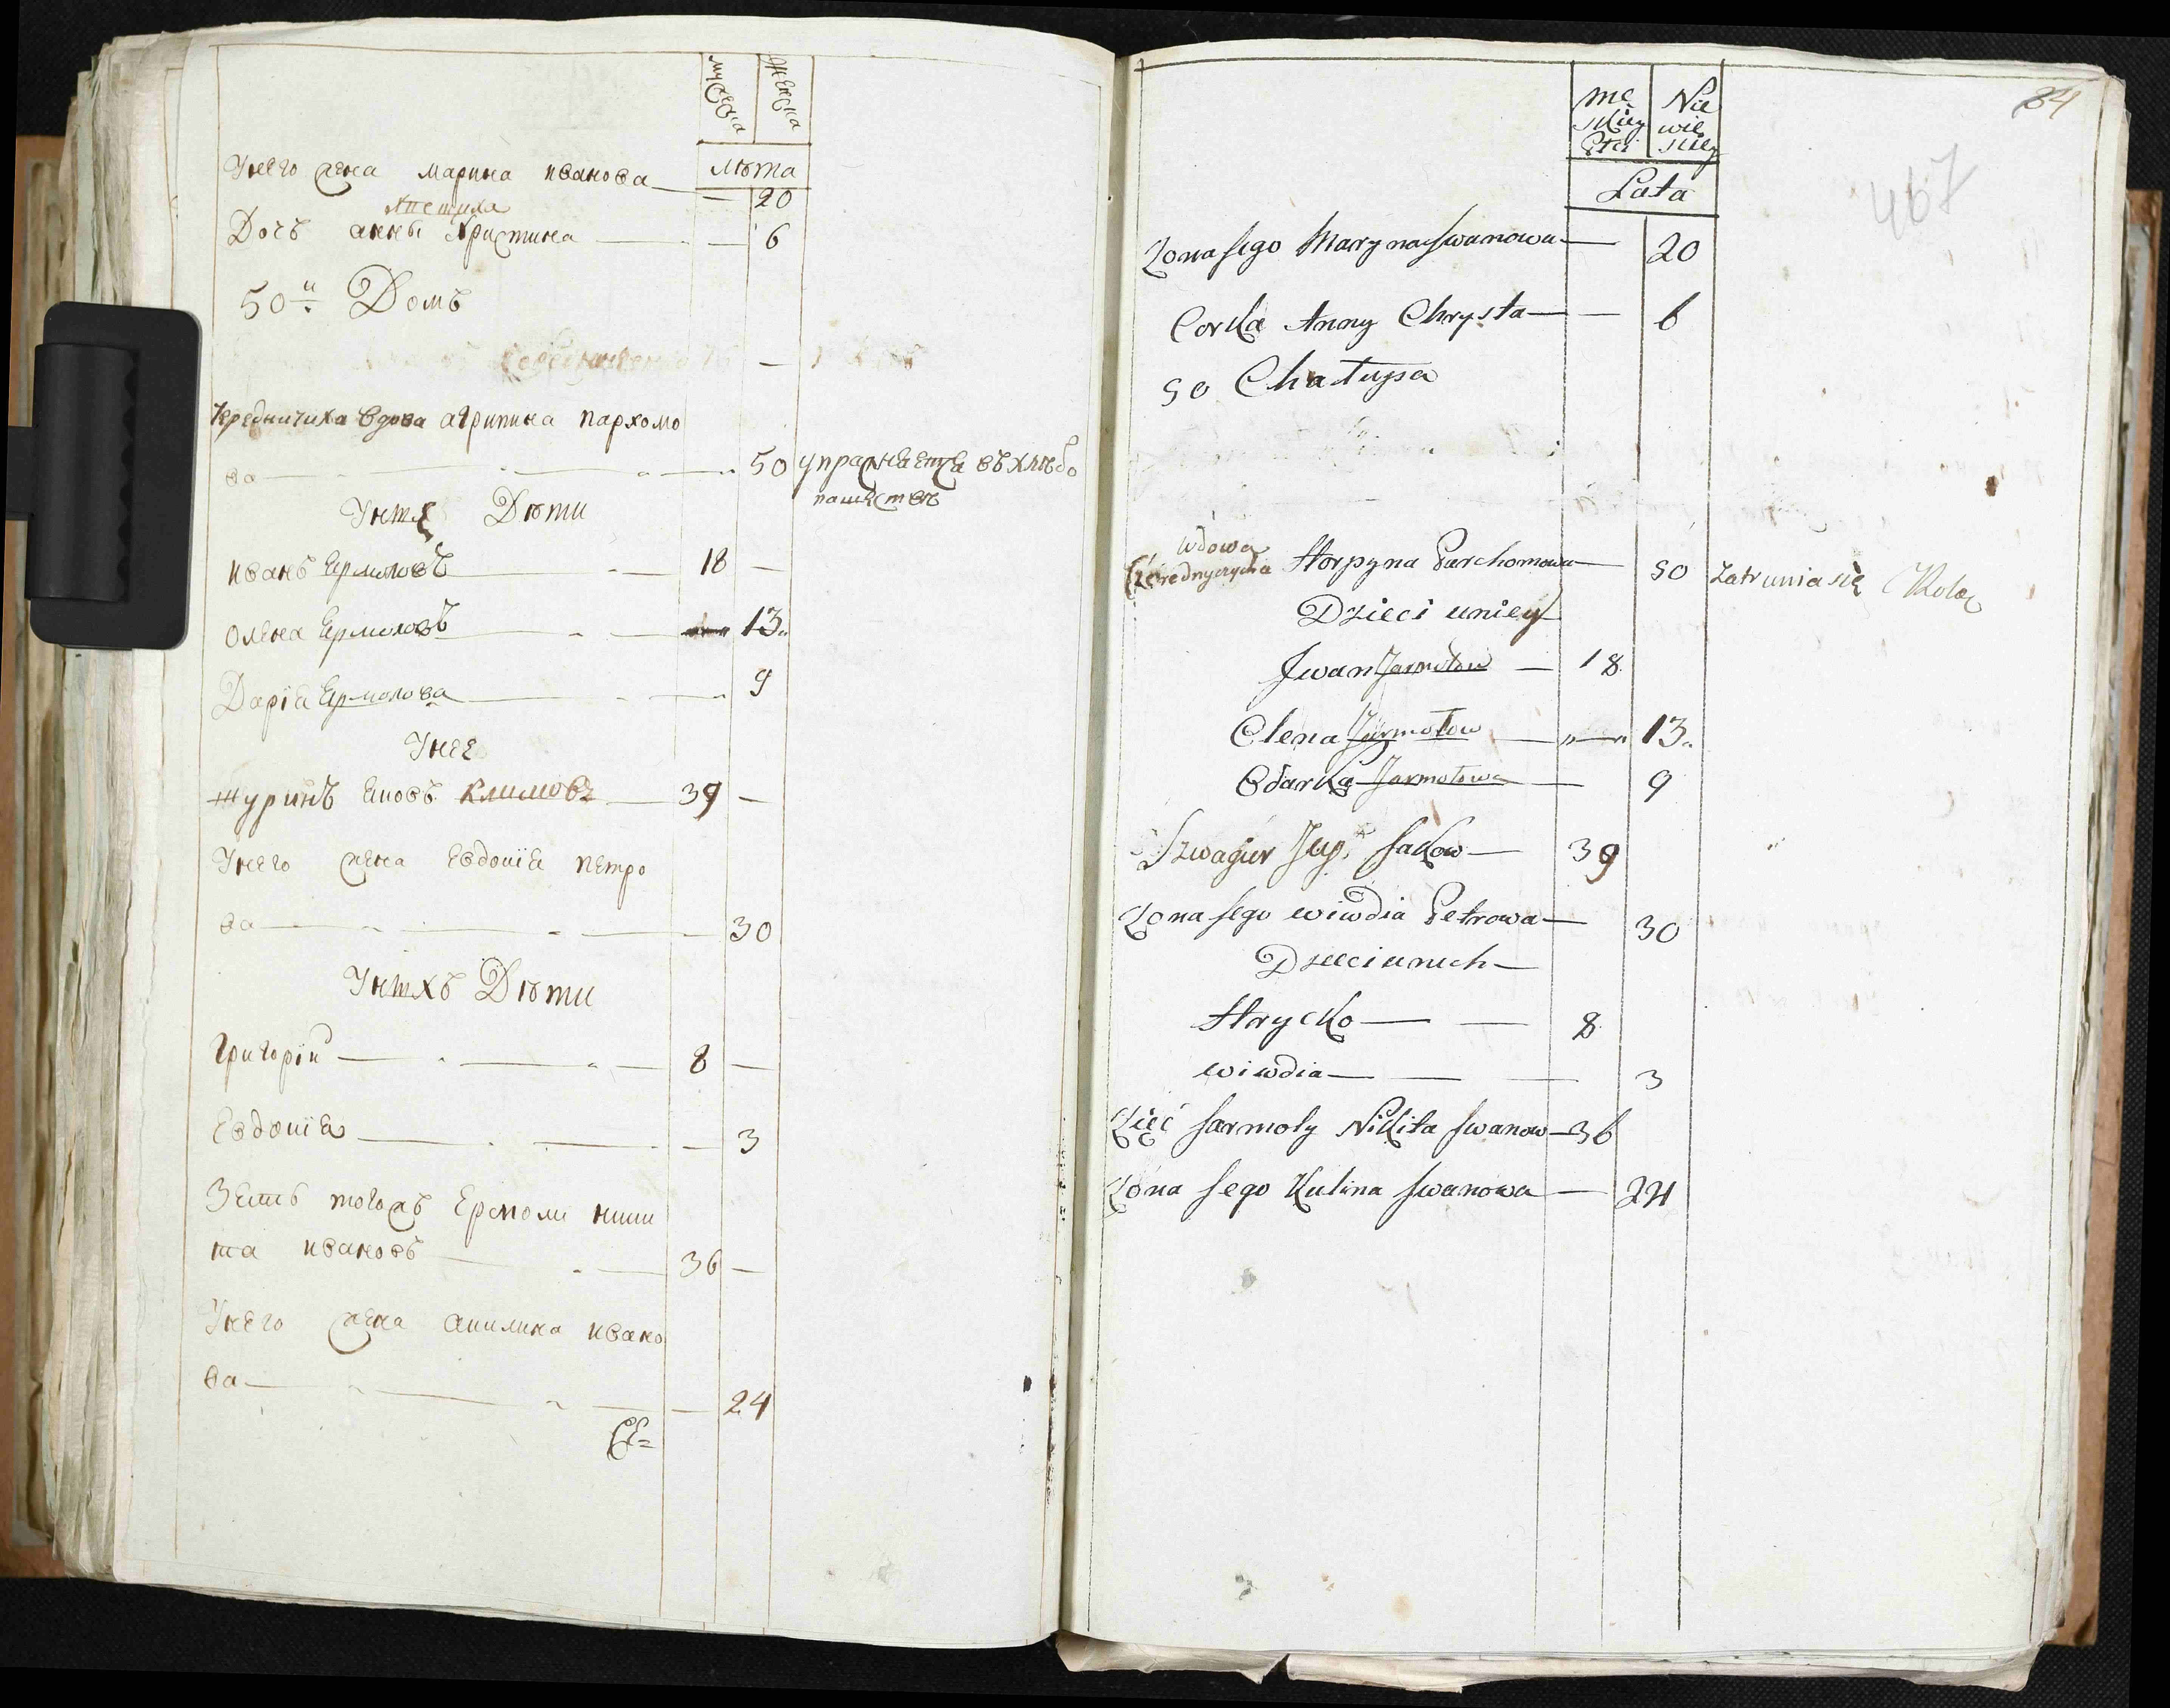 мужеска женска
лѣта
Унего жена марина иванова — 20
Липиха
Дочь анны Христина — — 6
50й Домъ
Чередничиха вдова агрипина пархомо
ва — 50 упражнаетца въ хлѣбо
пашествѣ
Унѣя Дѣти
иванъ Ермоловъ — 18 —
олена Ермоловъ — 13
Дарїа Ермолова — 9
Унее
шуринъ Еповъ Климовъ 39 —
Унего жена Евдокїа петро
ва — 30
Унѣхъ Дѣти
Григорїй — 8 —
Евдокїа — 3
Зять тогожъ Ермоли ники
та ивановъ — 36 —
Унего жена акилина ивано
ва — 24
СЕ=
84
467
mę skiey Płci Nie wie sciey
Lata
Zona jego Maryna Iwanowa — 20
Corka Anny Chrysta — — 6
50 Chałupa
wdowa
Czerednyczycha Horpyna Parchomowa — 50 Zatrunia się Rolą
Dzieci uniey
Iwan Jarmołow — 18
Olena Jarmołow — 13
Odarka Jarmołowa — 9
Szwagier Jey Jakow — 39
Zona jego wiwdia Petrowa — 30
Dzieci unich
Hrycko — — 8
wiwdia — — 3
Zięć Jarmoły Nikita Iwanow — 36
Zona jego Kulina Iwanowa — 24